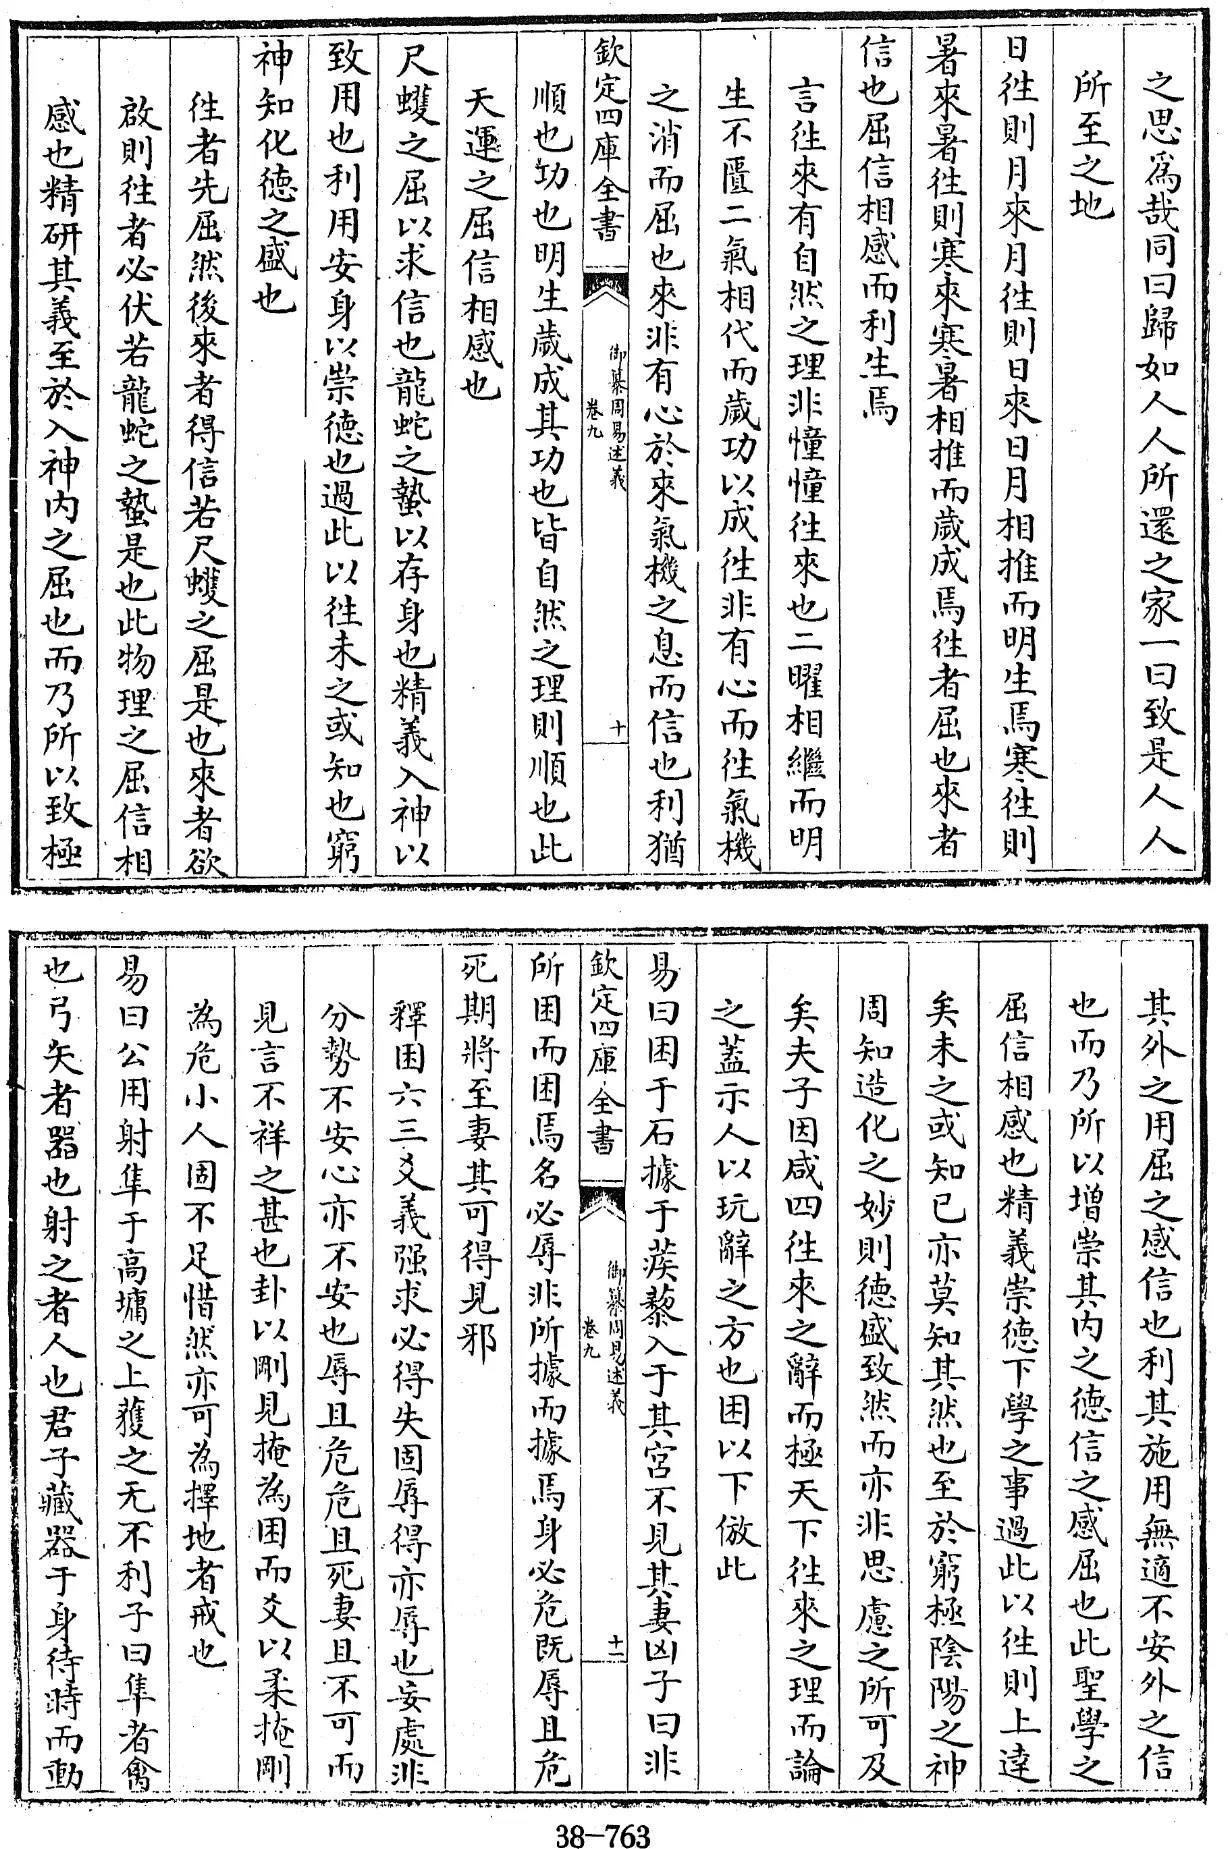 之思爲哉同曰歸如人人所還之家一曰致是人人
所至之地
日徃則月來月徃則日來日月相推而明生焉寒徃則
暑來暑徃則寒來寒暑相推而歲成焉徃者屈也來者
信也屈信相感而利生焉
言徃來有自然之理非憧憧徃來也二曜相繼而明
生不匱二氣相代而歲功以成徃非有心而徃氣機
之消而屈也來非有心於來氣機之息而信也利猶
欽定四庫全書
御纂周易述義
卷九
十
順也功也明生歲成其功也皆自然之理則順也此
天運之屈信相感也
尺蠖之屈以求信也龍蛇之蟄以存身也精義入神以
致用也利用安身以崇德也過此以徃未之或知也窮
神知化德之盛也
徃者先屈然後來者得信若尺蠖之屈是也來者欲
啟則徃者必伏若龍蛇之蟄是也此物理之屈信相
感也精研其義至於入神内之屈也而乃所以致極
其外之用屈之感信也利其施用無適不安外之信
也而乃所以增崇其内之德信之感屈也此聖學之
屈信相感也精義崇德下學之事過此以徃則上達
矣未之或知已亦莫知其然也至於窮極陰陽之神
周知造化之妙則德盛致然而亦非思慮之所可及
矣夫子因咸四徃來之辭而極天下徃來之理而論
之蓋示人以玩辭之方也困以下倣此
易曰困于石據于蒺藜入于其宮不見其妻凶子曰非
欽定四庫全書
御纂周易述義
卷九
十一
所困而困焉名必辱非所據而據焉身必危既辱且危
死期將至妻其可得見邪
釋困六三爻義强求必得失固辱得亦辱也妄處非
分勢不安心亦不安也辱且危危且死妻且不可而
見言不祥之甚也卦以剛見掩為困而爻以柔掩剛
為危小人固不足惜然亦可為擇地者戒也
易曰公用射隼于高墉之上獲之无不利子曰隼者禽
也弓矢者器也射之者人也君子藏器于身待時而動
38—763